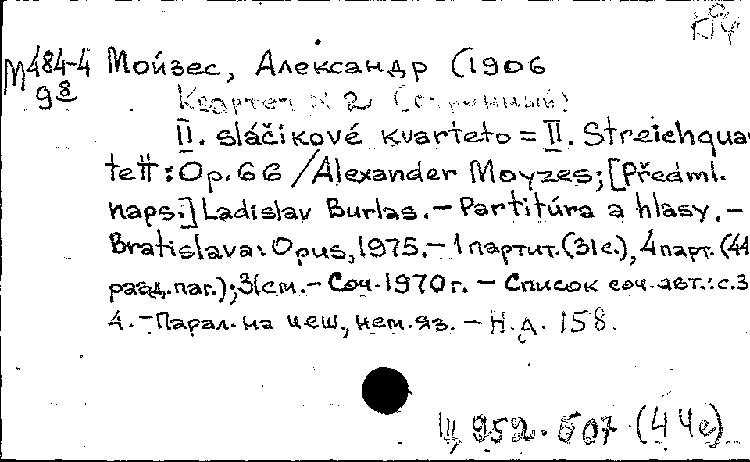 М 484-4
98
Мойзес, Александр (1906
Квартет № 2 (струнный)
II. sláčikové kvarteto = II. Streichquar
tett: Op. 66 / Alexander Moyzes; [Předml.
naps.:] Ladislav Burlas. – Partitúra a hlasy. –
Bratislava: Opus, 1975. – 1 партит. (31 с.), 4 парт. (44
разд. паг.); 31 см. – Соч. 1970 г. – Список соч. авт.: с. 3
4. – Парал. на чеш., нем. яз. – Н. д. 158.
Ц 952.507 (4 Че)